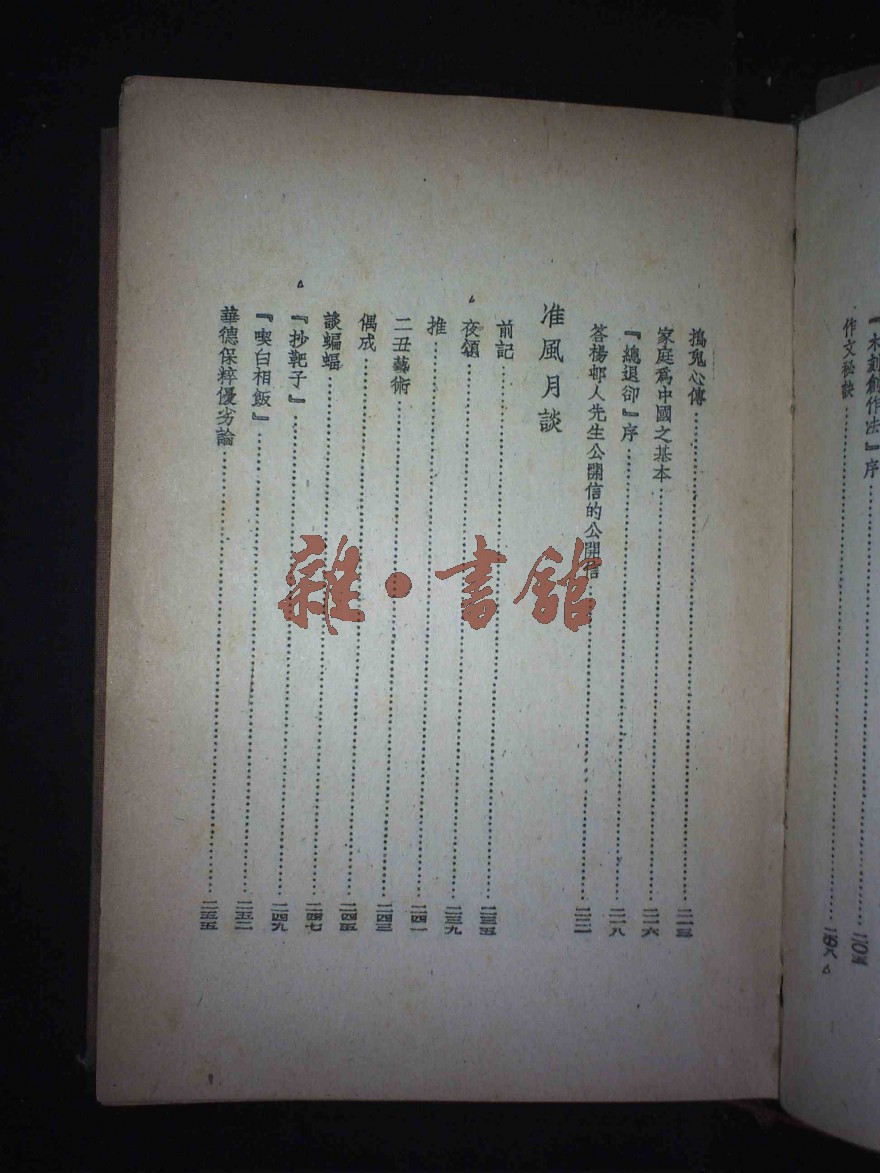 『木刻創作法』序
作文秘訣
搗鬼心傳 二一三
家庭爲中國之基本 二一六
『總退卻』序 二一八
答楊邨人先生公開信的公開信 二二一
准風月談
前記 二三五
夜頌 二三九
推 二四一
二丑藝術 二四三
偶成 二四五
談蝙蝠 二四七
『抄靶子』 二四九
『喫白相飯』 二五二
華德保粹優劣論 二五五
雜·書館